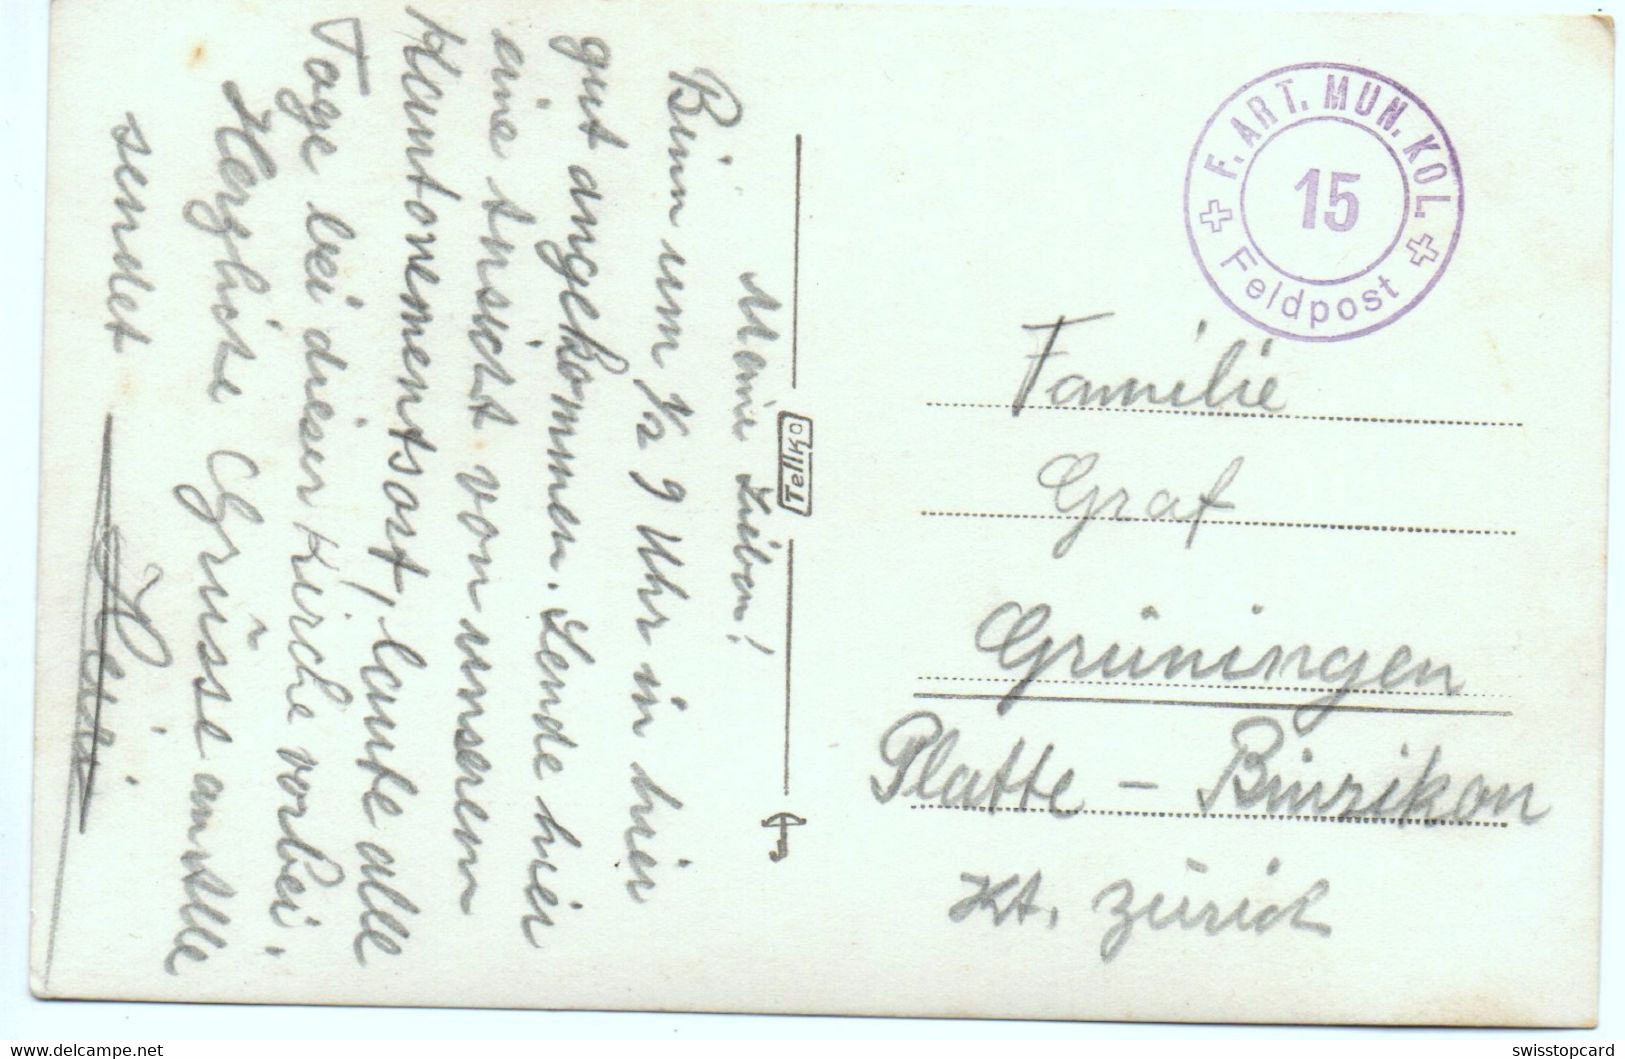 Meine Lieben!
Binn um 1/2 9 Uhr in hier
gut angekommen. Sende hier
eine Ansicht von unserem
Kantonementsort, laufe alle
Tage bei dieser Kirche vorbei.
Herzliche Grüsse an alle
sendet
Heiri
Tellko
F. ART. MUN. KOL.
15
Feldpost
Familie
Graf
Grüningen
Platte - Binzikon
Kt. Zürich
swisstopcard